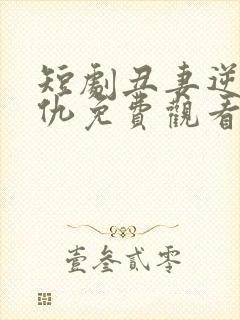 短劇丑妻逆
仇免費觀看
壹叁貳零